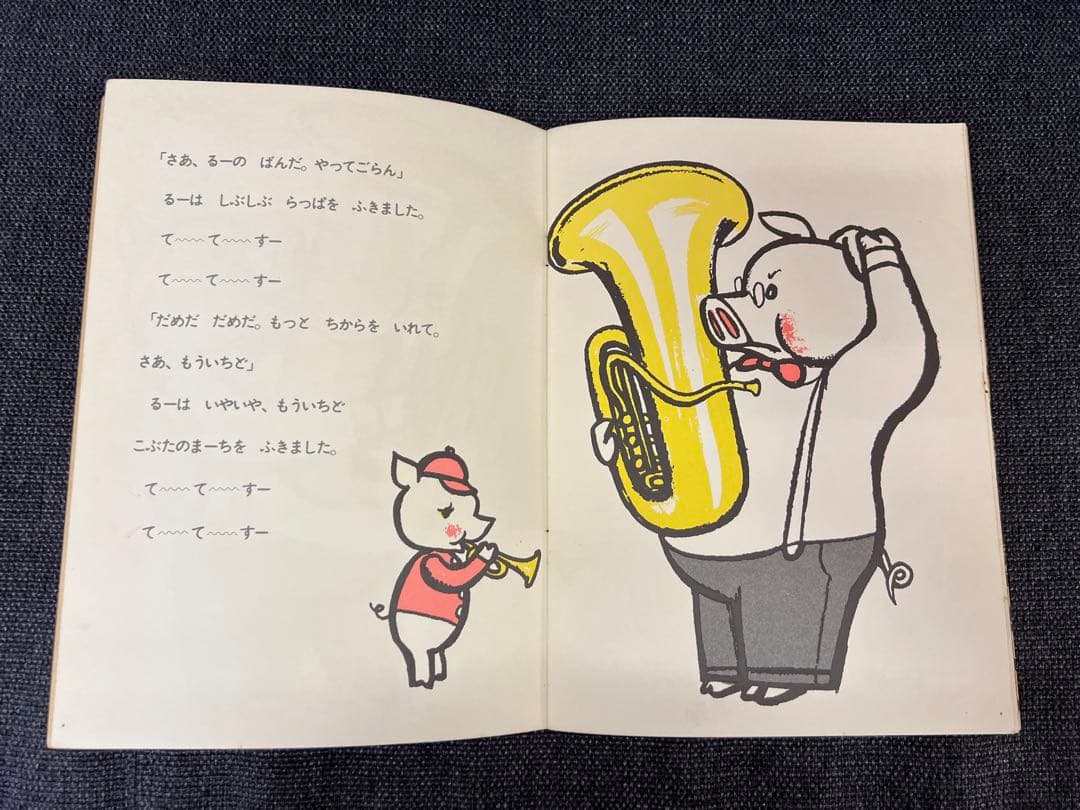 「さあ、るーの　ばんだ。やってごらん」
るーは　しぶしぶ　らっぱを　ふきました。
て〰〰て〰〰すー
て〰〰て〰〰すー
「だめだ　だめだ。もっと　ちからを　いれて。
さあ、もういちど」
るーは　いやいや、もういちど
こぶたのまーちを　ふきました。
て〰〰て〰〰すー
て〰〰て〰〰すー